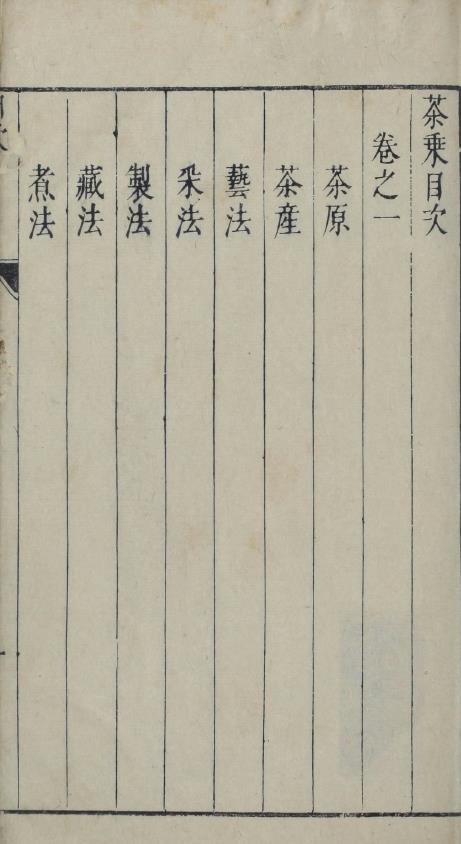 茶乗目次
卷之一
茶原
茶産
藝法
采法
製法
藏法
煮法